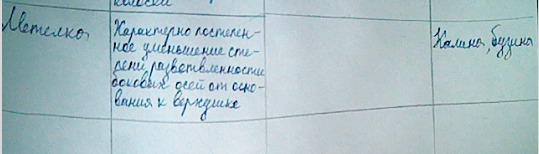 колосея
Метелка
Характерно постепен-
ное уменьшение сте-
пени разветвленности
боковых осей от осно-
вания к верхушке
Калина, бузина